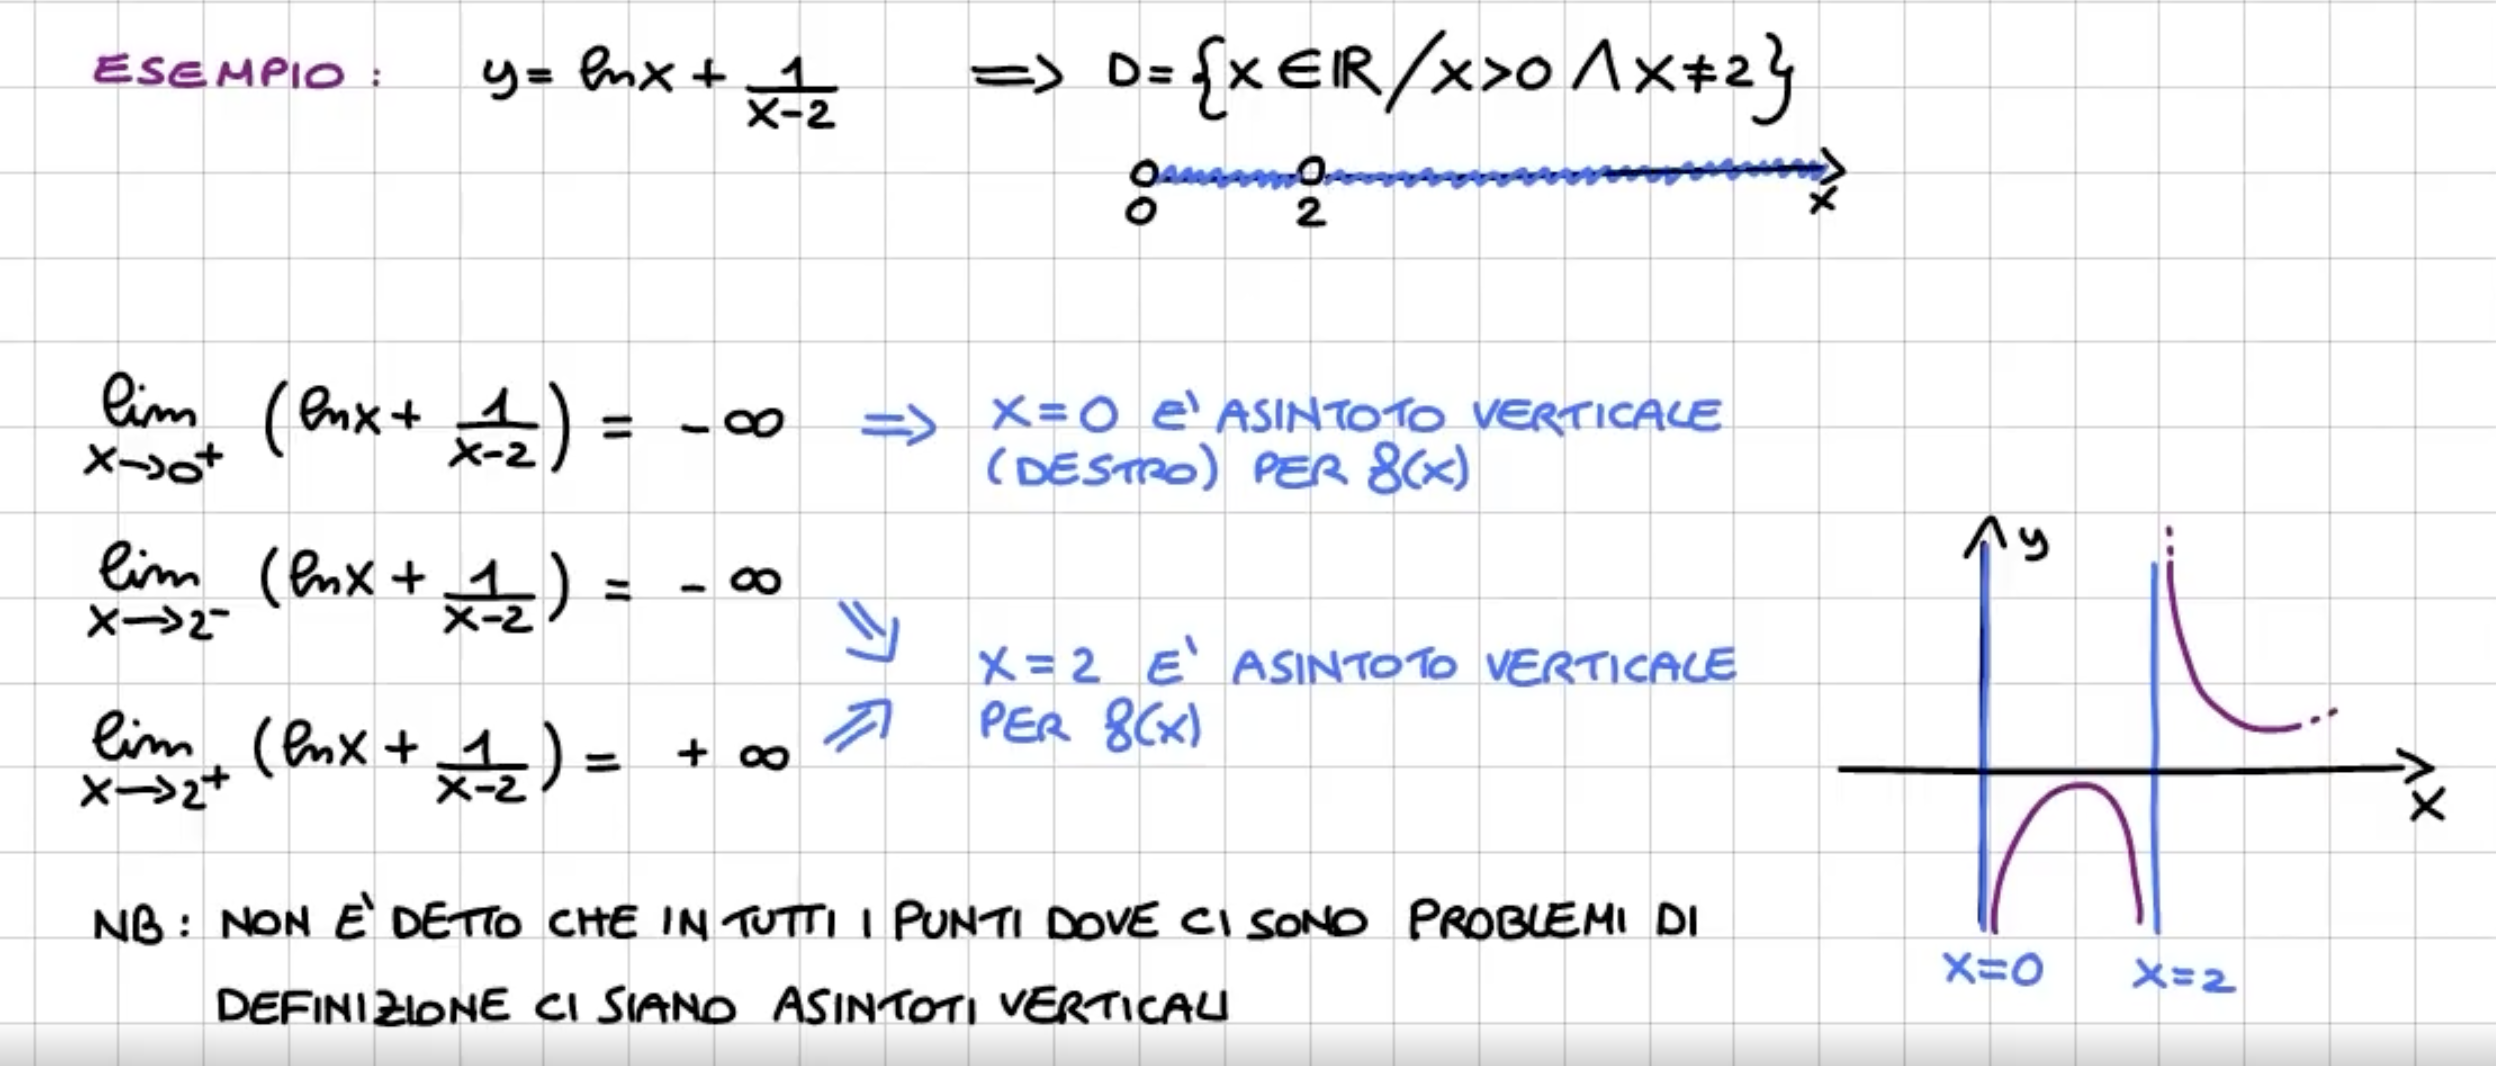 ESEMPIO: y = ln x + 1/(x-2) ⟹ D = {x ∈ ℝ / x>0 ∧ x≠2}
0 2 x
lim x→0⁺ (ln x + 1/(x-2)) = -∞ ⟹ X=0 E' ASINTOTO VERTICALE
(DESTRO) PER f(x)
lim x→2⁻ (ln x + 1/(x-2)) = -∞
X=2 E' ASINTOTO VERTICALE
PER f(x)
lim x→2⁺ (ln x + 1/(x-2)) = +∞
y
x
X=0 X=2
NB: NON E' DETTO CHE IN TUTTI I PUNTI DOVE CI SONO PROBLEMI DI
DEFINIZIONE CI SIANO ASINTOTI VERTICALI